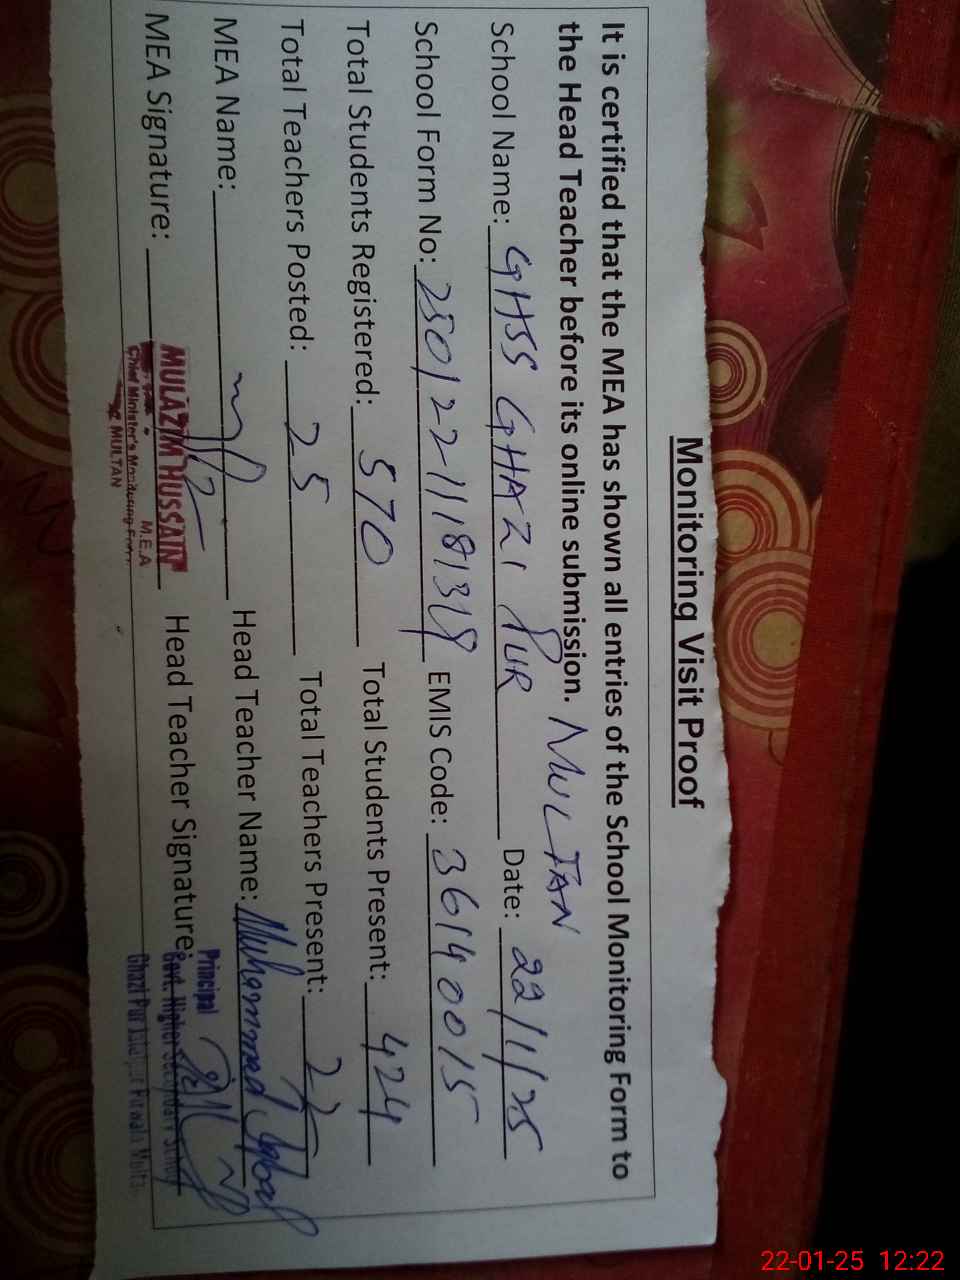 Monitoring Visit Proof
It is certified that the MEA has shown all entries of the School Monitoring Form to
the Head Teacher before its online submission. MULTAN
School Name: GHSS GHAZI PUR Date: 22/1/25
School Form No: EMIS Code: 36140015
Total Students Registered: 570 Total Students Present: 424
Total Teachers Posted: 25 Total Teachers Present:
MEA Name: Head Teacher Name: Muhammad Iqbal
MEA Signature: Head Teacher Signature:
MULAZIM HUSSAIN
M.E.A
Chief Minister's Monitoring Force
MULTAN
Principal
Govt. Higher Secondary School
Ghazi Pur
22-01-25 12:22